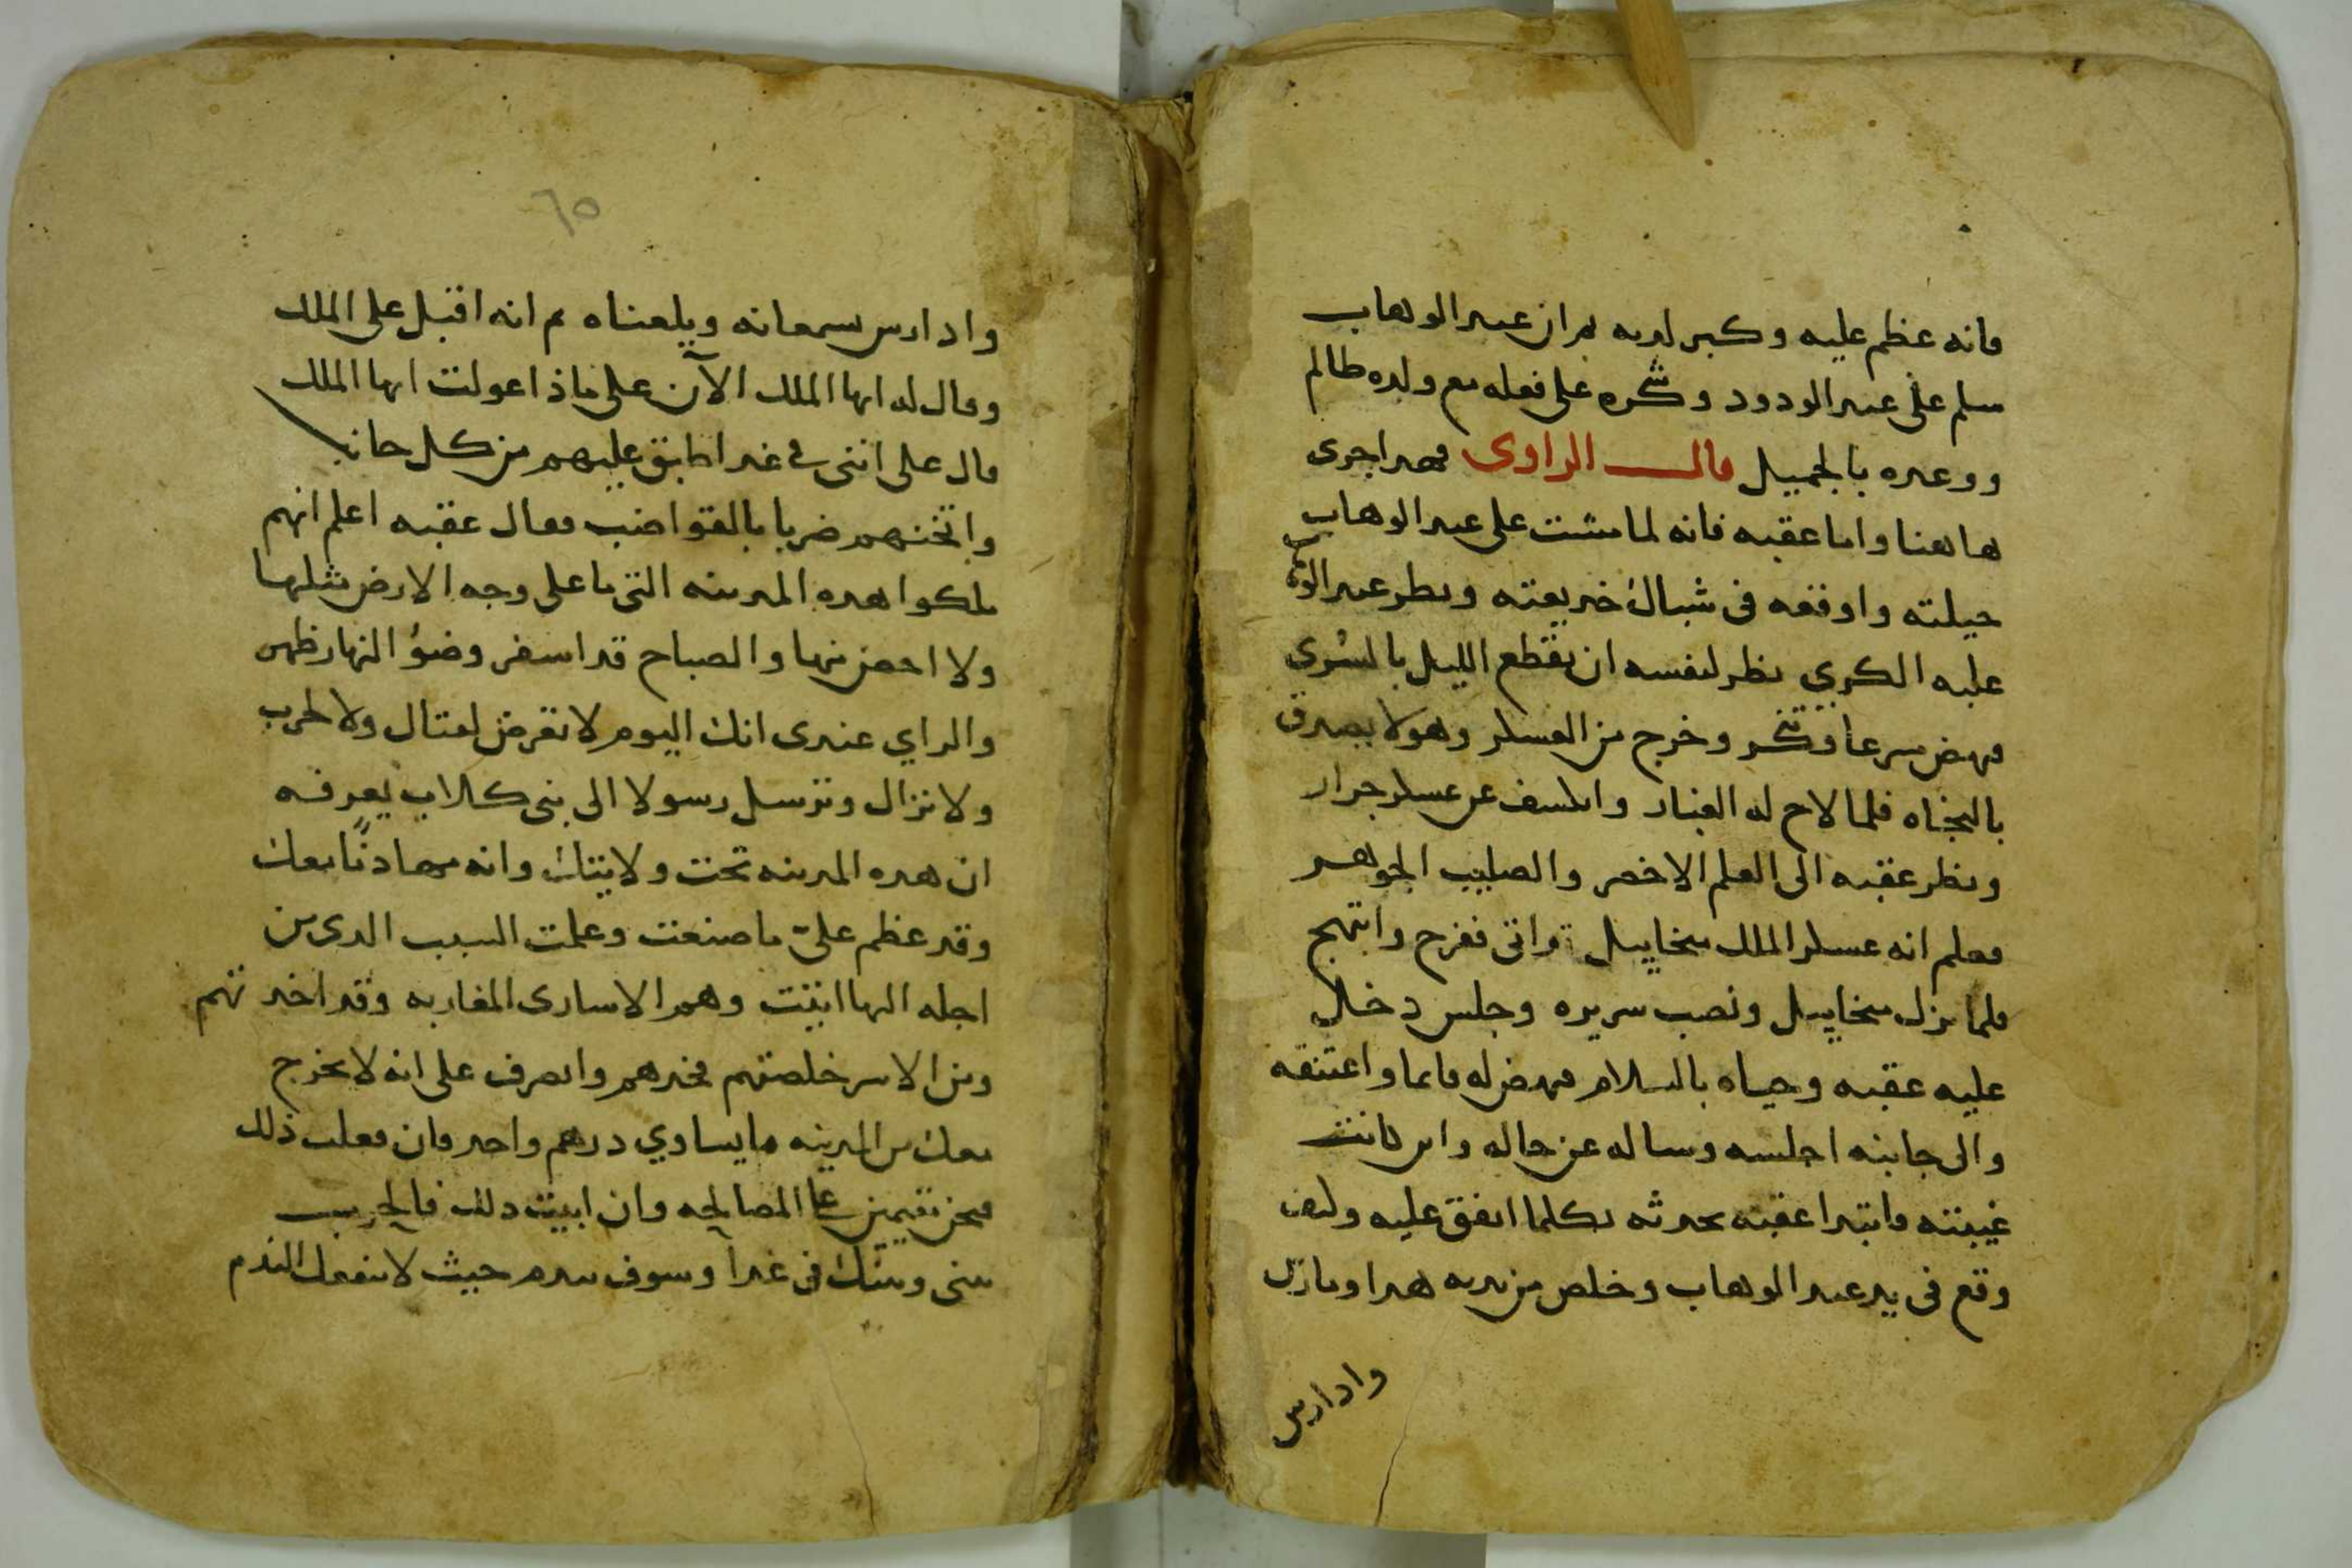 فانه عظم عليه وكبر لديه ثم ان عبد الوهاب
سلم على عبد الودود وشكره على فعله مع ولده ظالم
ووعده بالجميل قال الراوى فهدا جرى
هاهنا واما عقبه فانه لما مشت على عبد الوهاب
حيلته واوقعه فى شباك خديعته ونظر عبد الوهاب
عليه الكري نظر لنفسه ان يقطع الليل بالسُرى
فنهض سرعا وتنكر وخرج من العسكر وهو لا يصدق
بالنجاه فلما لاح له الغبار وانكشف عن عسكر جرار
ونظر عقبه الى العلم الاخضر والصليب الجوهر
فعلم انه عسكر الملك ميخاييل قد اتى ففرح وابتهج
فلما نزل ميخاييل ونصب سريره وجلس دخل
عليه عقبه وحياه بالسلام فنهض له قايما واعتنقه
والى جانبه اجلسه وساله عن حاله واين كانت
غيبته فابتدا عقبه يحدثه بكلما اتفق عليه وكيف
وقع فى يد عبد الوهاب وخلص من يديه هدا ومارس
وادارس
٦٥
وادارس يسمعانه ويلعناه ثم انه اقبل على الملك
وقال له ايها الملك الآن على ماذا عولت ايها الملك
قال على اننى فى غد اطابق عليهم من كل جانب
واثخنهم ضربا بالقواضب فقال عقبه اعلم انهم
ملكوا هده المدينه التى ما على وجه الارض مثلها
ولا احصن منها والصباح قد اسفر وضوُ النهار ظهر
والراي عندى انك اليوم لا تعرض لقتال ولا لحرب
ولا نزال وترسل رسولا الى بنى كلاب يعرفه
ان هده المدينه تحت ولايتك وانه مهادنًا معك
وقد عظم علىّ ما صنعت وعلمت السبب الدى من
اجله اليها اتيت وهم الاسارى المغاربه وقد اخدتهم
ومن الاسر خلصتهم فخدهم وانصرف على انه لا يخرج
معك من المدينه ما يساوي درهم واحد فان فعلت ذلك
فنحن مقيمين على المصالحه وان ابيت دلك فالحرب
بينى وبينك فى غداً وسوف تندم حيث لا ينفعك الندم